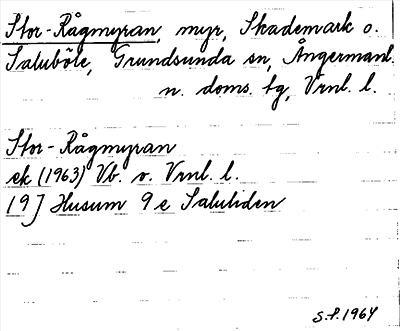 Stor-Rågmyran, myr, Skademark o.
Saluböle, Grundsunda sn, Ångermanl.
n. doms. tg, Vrnl. l.
Stor-Rågmyran
ek (1963) Vb. o. Vrnl. l.
19J Husum 9e Saluliden
S.P. 1964